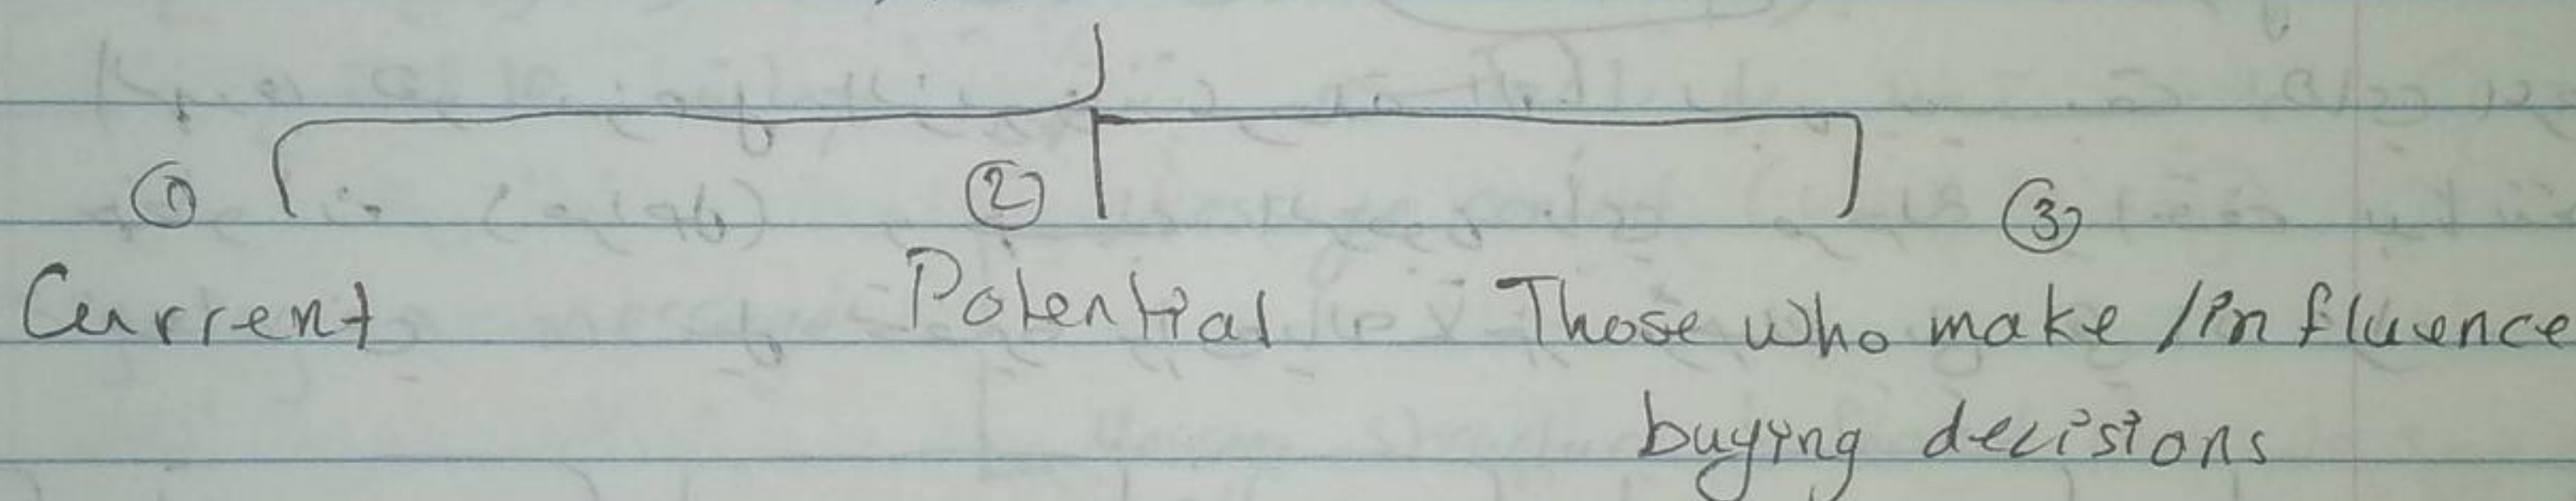 ① ② ③
Current Potential Those who make/influence
buying decisions